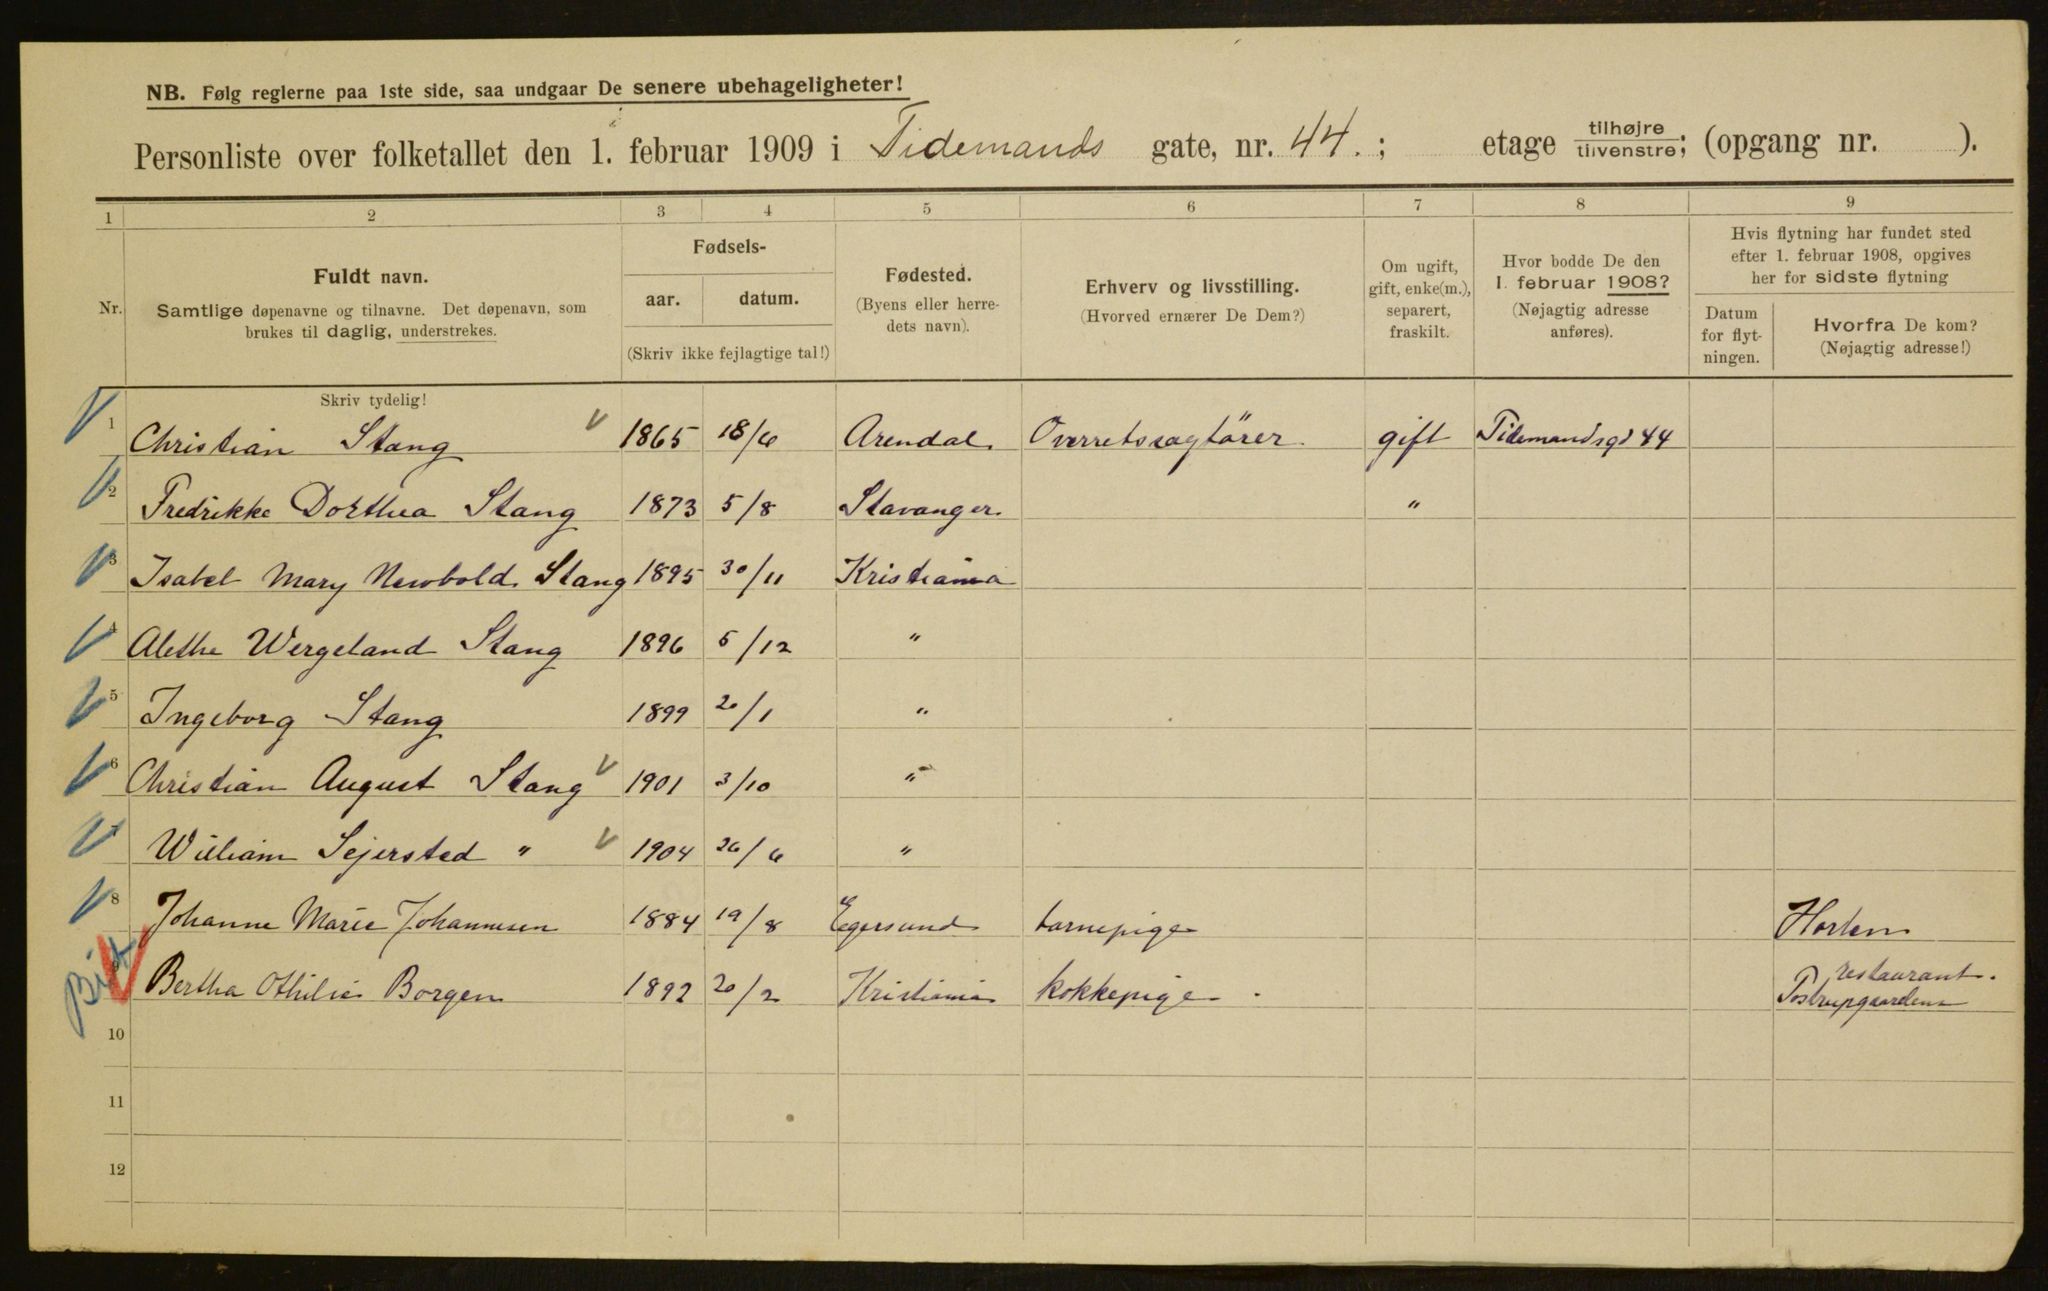 NB. Følg reglerne paa 1ste side, saa undgaar De senere ubehageligheter!
Personliste over folketallet den 1. februar 1909 i Tidemands gate, nr. 44. ; etage tilhøjre tilvenstre; (opgang nr. ).
1 2 3 4 5 6 7 8 9
Nr.
Fuldt navn.
Samtlige døpenavne og tilnavne. Det døpenavn, som
brukes til daglig, understrekes.
Fødsels-
aar. datum.
(Skriv ikke fejlagtige tal!)
Fødested.
(Byens eller herre-
dets navn).
Erhverv og livsstilling.
(Hvorved ernærer De Dem?)
Om ugift,
gift, enke(m.),
separert,
fraskilt.
Hvor bodde De den
1. februar 1908?
(Nøjagtig adresse
anføres).
Hvis flytning har fundet sted
efter 1. februar 1908, opgives
her for sidste flytning
Datum
for flyt-
ningen.
Hvorfra De kom?
(Nøjagtig adresse!)
Skriv tydelig!
1 Christian Stang 1865 18/6 Arendal Overretssagfører gift Tidemandsgd 44
2 Fredrikke Dorthea Stang 1873 5/8 Stavanger "
3 Isabel Mary Newbold Stang 1895 30/11 Kristiania
4 Alethe Wergeland Stang 1896 5/12 "
5 Ingeborg Stang 1899 20/1 "
6 Christian August Stang 1901 3/10 "
7 William Sejersted " 1904 26/6 "
8 Johanne Marie Johannesen 1884 19/8 Egersund barnepige Horten
9 Bertha Othilie Borgen 1892 20/2 Kristiania kokkepige restaurant.
Tostrupgaarden
10
11
12